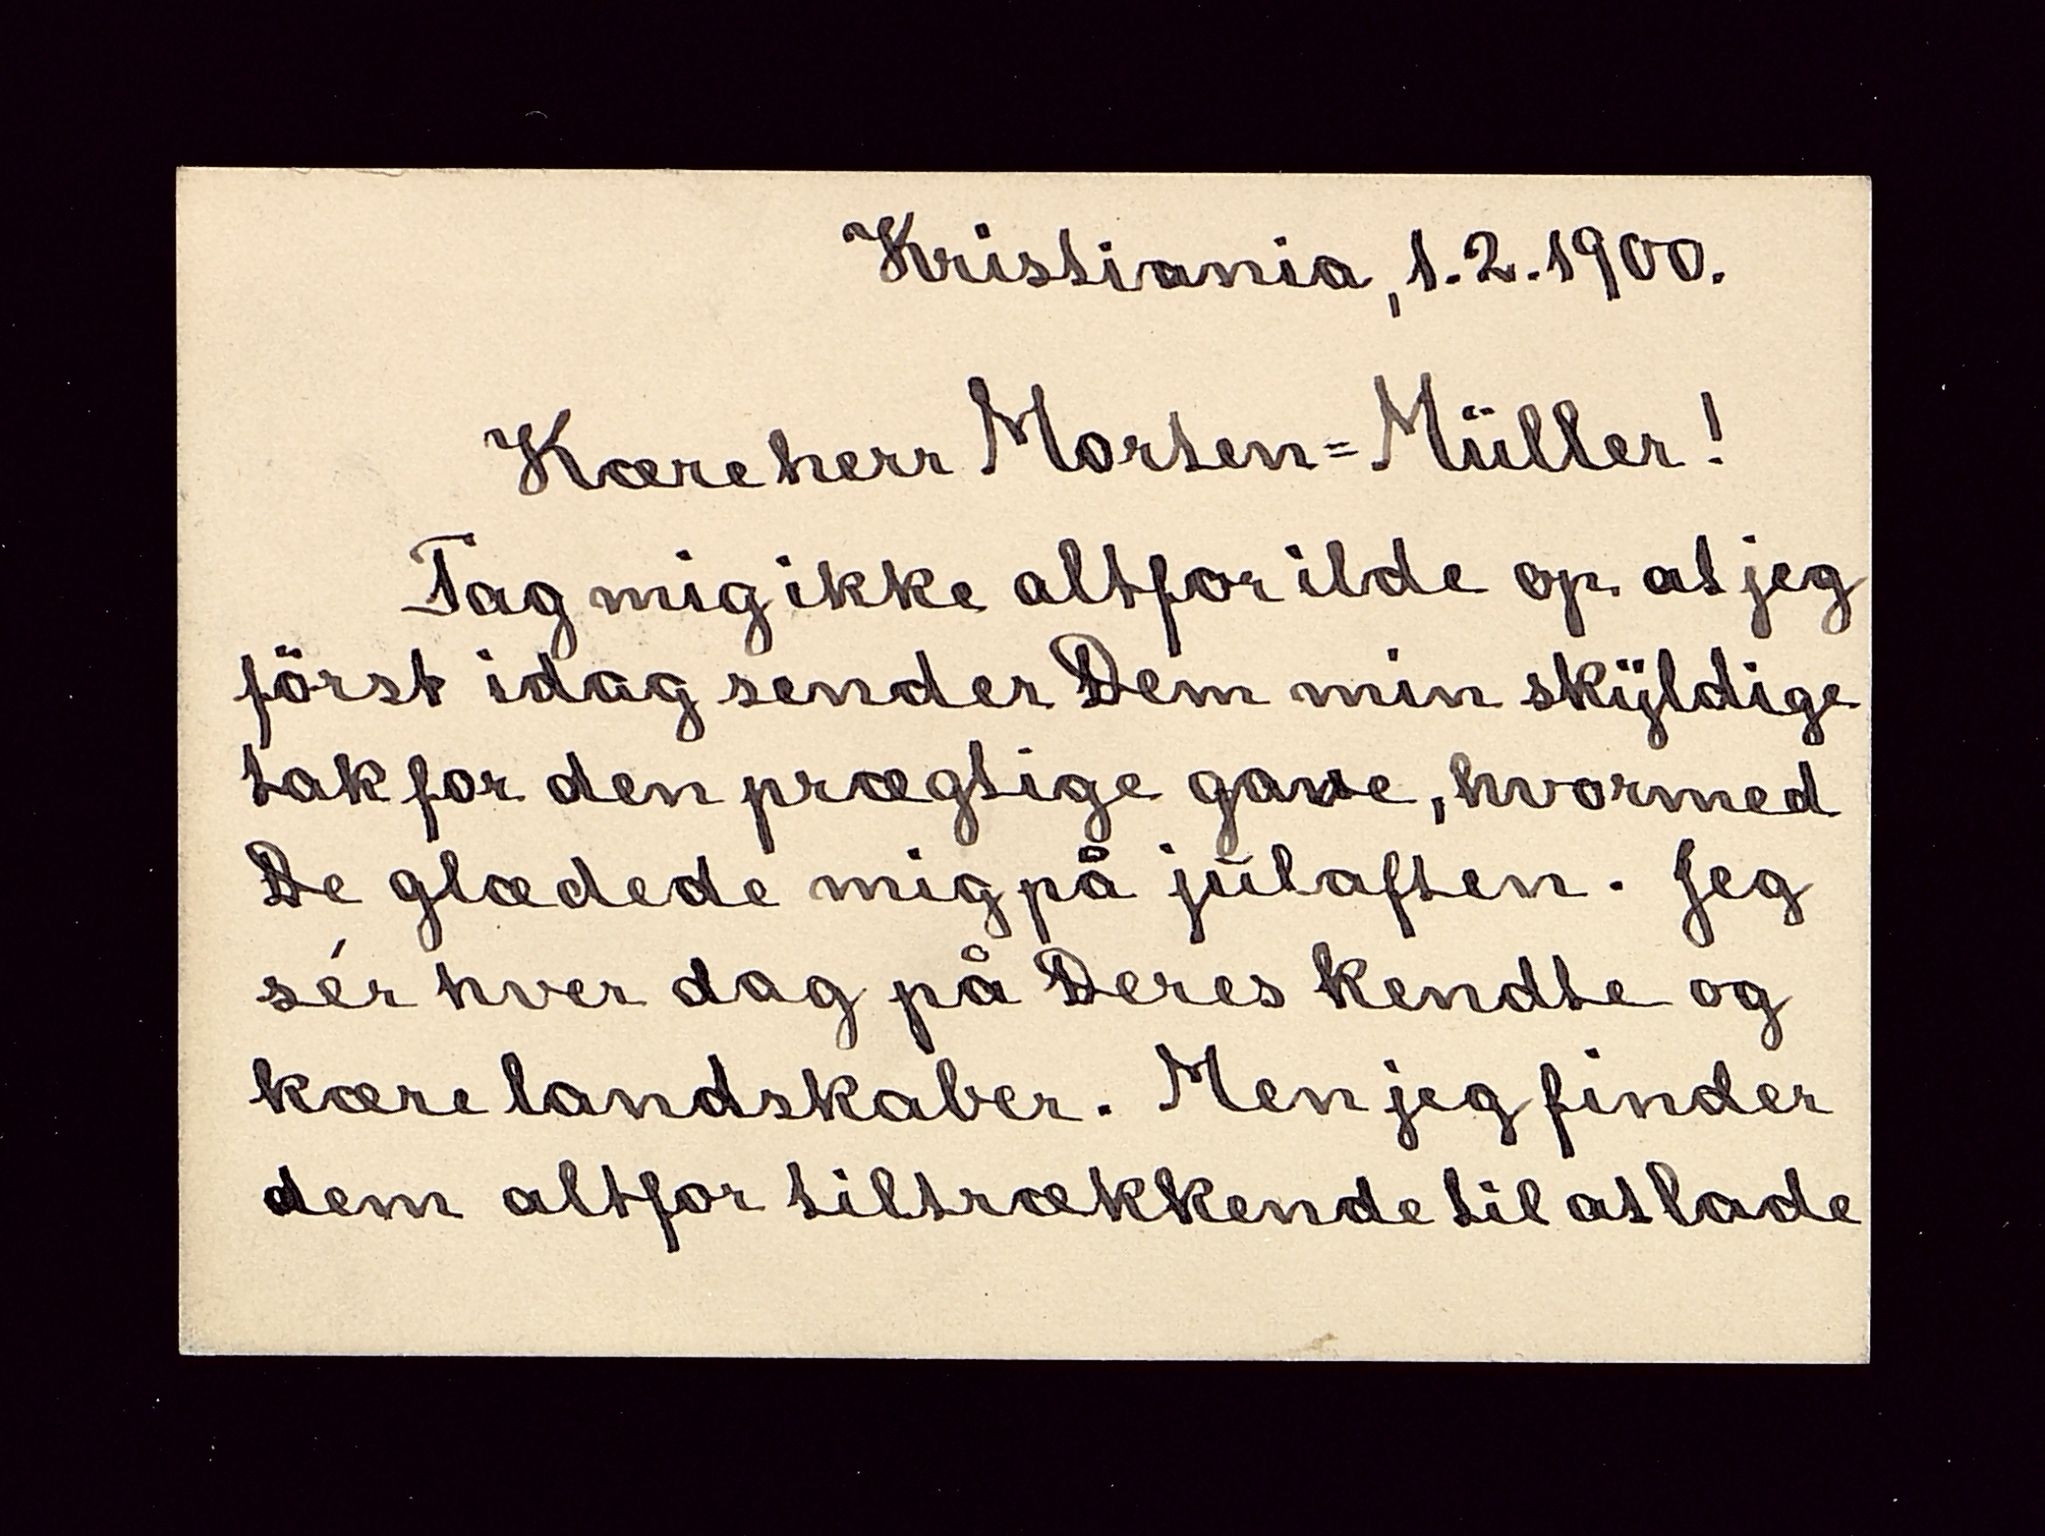 Kristiania, 1.2.1900.
Kære herr Morten=Müller!
Tag mig ikke altfor ilde op at jeg
först idag sender Dem min skÿldige
tak for den prægtige gave, hvormed
De glædede mig på julaften. Jeg
sér hver dag på Deres kendte og
kære landskaber. Men jeg finder
dem altfor tiltrækkende til at lade